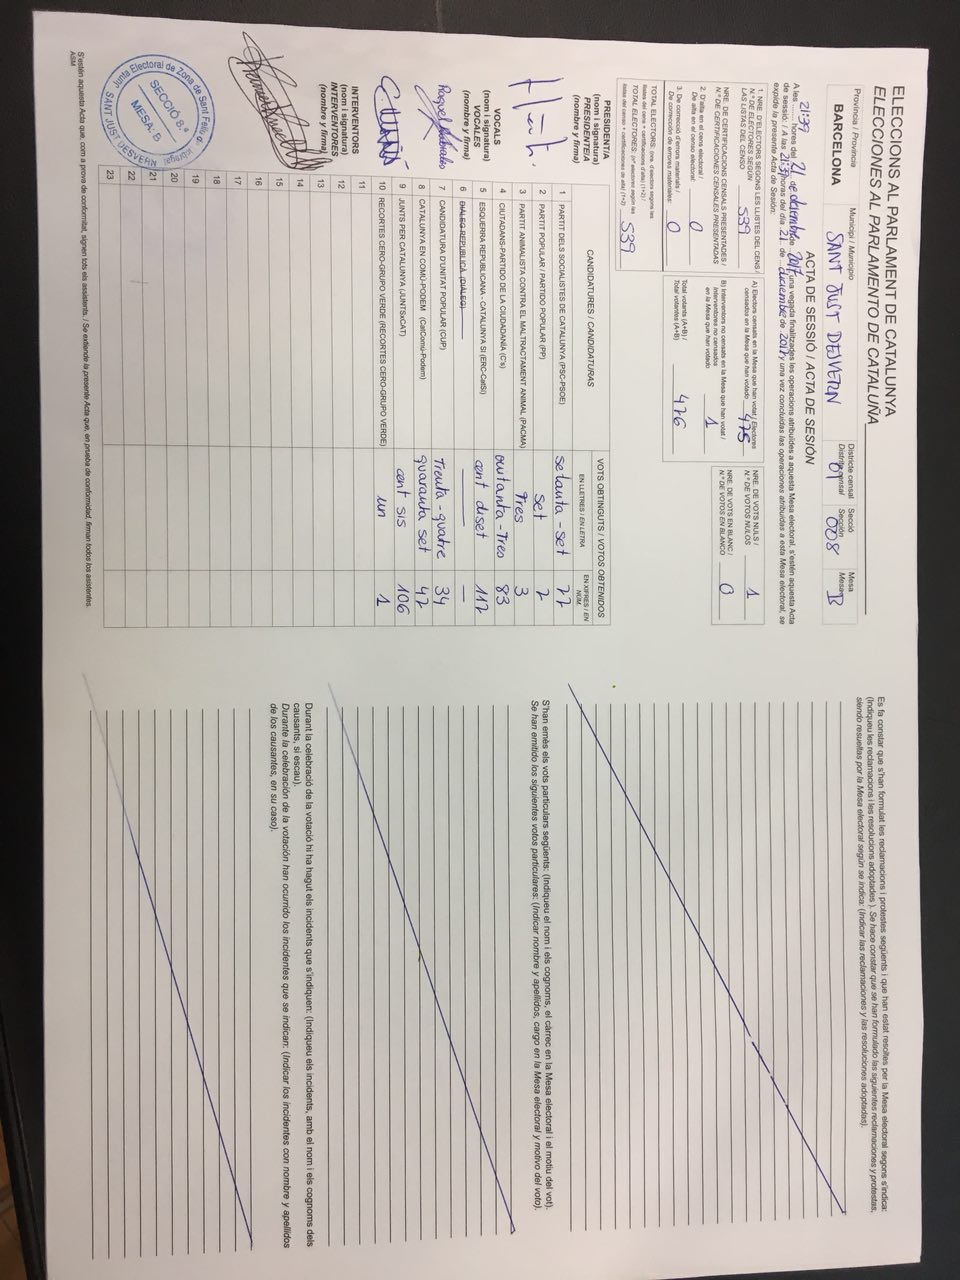 ELECCIONS AL PARLAMENT DE CATALUNYA
ELECCIONES AL PARLAMENTO DE CATALUÑA
Província / Provincia
BARCELONA
Municipi / Municipio
SANT JUST DESVERN
Districte censal
Distrito censal
01
Secció
Sección
008
Mesa
Mesa
B
ACTA DE SESSIÓ / ACTA DE SESIÓN
A les 21:39 hores del 21 de diciembre de 2017, una vegada finalitzades les operacions atribuïdes a aquesta Mesa electoral, s'estén aquesta Acta
de sessió: / A las 21:39 horas del día 21 de diciembre de 2017, una vez concluidas las operaciones atribuidas a esta Mesa electoral, se
expide la presente Acta de Sesión:
1. NRE. D'ELECTORS SEGONS LES LLISTES DEL CENS /
N.º DE ELECTORES SEGÚN
LAS LISTAS DEL CENSO 539
NRE. DE CERTIFICACIONS CENSALS PRESENTADES /
N.º DE CERTIFICACIONES CENSALES PRESENTADAS
2. D'alta en el cens electoral /
De alta en el censo electoral: 0
3. De correcció d'errors materials /
De corrección de errores materiales: 0
TOTAL ELECTORS: (nre. d'electors segons les
llistes del cens + certificacions d'alta) (1+2) /
TOTAL ELECTORES: (n.º electores según las
listas del censo + certificaciones de alta) (1+2) 539
A) Electors censats en la Mesa que han votat / Electores
censados en la Mesa que han votado 475
B) Interventors no censats en la Mesa que han votat /
Interventores no censados
en la Mesa que han votado 1
Total votants (A+B) /
Total votantes (A+B) 476
NRE. DE VOTS NULS /
N.º DE VOTOS NULOS 1
NRE. DE VOTS EN BLANC /
N.º DE VOTOS EN BLANCO 0
PRESIDENT/A
(nom i signatura)
PRESIDENTE/A
(nombre y firma)
VOCALS
(nom i signatura)
VOCALES
(nombre y firma)
INTERVENTORS
(nom i signatura)
INTERVENTORES
(nombre y firma)
CANDIDATURES / CANDIDATURAS
VOTS OBTINGUTS / VOTOS OBTENIDOS
EN LLETRES / EN LETRA
EN XIFRES / EN NÚM.
1 PARTIT DELS SOCIALISTES DE CATALUNYA (PSC-PSOE) setanta-set 77
2 PARTIT POPULAR / PARTIDO POPULAR (PP) set 7
3 PARTIT ANIMALISTA CONTRA EL MALTRACTAMENT ANIMAL (PACMA) Tres 3
4 CIUTADANS-PARTIDO DE LA CIUDADANÍA (C's) vuitanta-Tres 83
5 ESQUERRA REPUBLICANA - CATALUNYA SÍ (ERC-CatSí) cent diset 117
6 DIÀLEG REPUBLICÀ (DIÀLEG) — —
7 CANDIDATURA D'UNITAT POPULAR (CUP) Trenta-quatre 34
8 CATALUNYA EN COMÚ-PODEM (CatComú-Podem) quaranta set 47
9 JUNTS PER CATALUNYA (JUNTSxCAT) cent sis 106
10 RECORTES CERO-GRUPO VERDE (RECORTES CERO-GRUPO VERDE) un 1
11
12
13
14
15
16
17
18
19
20
21
22
23
Junta Electoral de Zona de Sant Feliu de Llobregat
SECCIÓ 8.ª
MESA: B
SANT JUST DESVERN
S'estén aquesta Acta que, com a prova de conformitat, signen tots els assistents. / Se extiende la presente Acta que, en prueba de conformidad, firman todos los asistentes.
ASM
Es fa constar que s'han formulat les reclamacions i protestes següents i que han estat resoltes per la Mesa electoral segons s'indica:
(Indiqueu les reclamacions i les resolucions adoptades). Se hace constar que se han formulado las siguientes reclamaciones y protestas,
siendo resueltas por la Mesa electoral según se indica: (Indicar las reclamaciones y las resoluciones adoptadas).
S'han emès els vots particulars següents: (Indiqueu el nom i els cognoms, el càrrec en la Mesa electoral i el motiu del vot).
Se han emitido los siguientes votos particulares: (Indicar nombre y apellidos, cargo en la Mesa electoral y motivo del voto).
Durant la celebració de la votació hi ha hagut els incidents que s'indiquen: (Indiqueu els incidents, amb el nom i els cognoms dels
causants, si escau).
Durante la celebración de la votación han ocurrido los incidentes que se indican: (Indicar los incidentes con nombre y apellidos
de los causantes, en su caso).